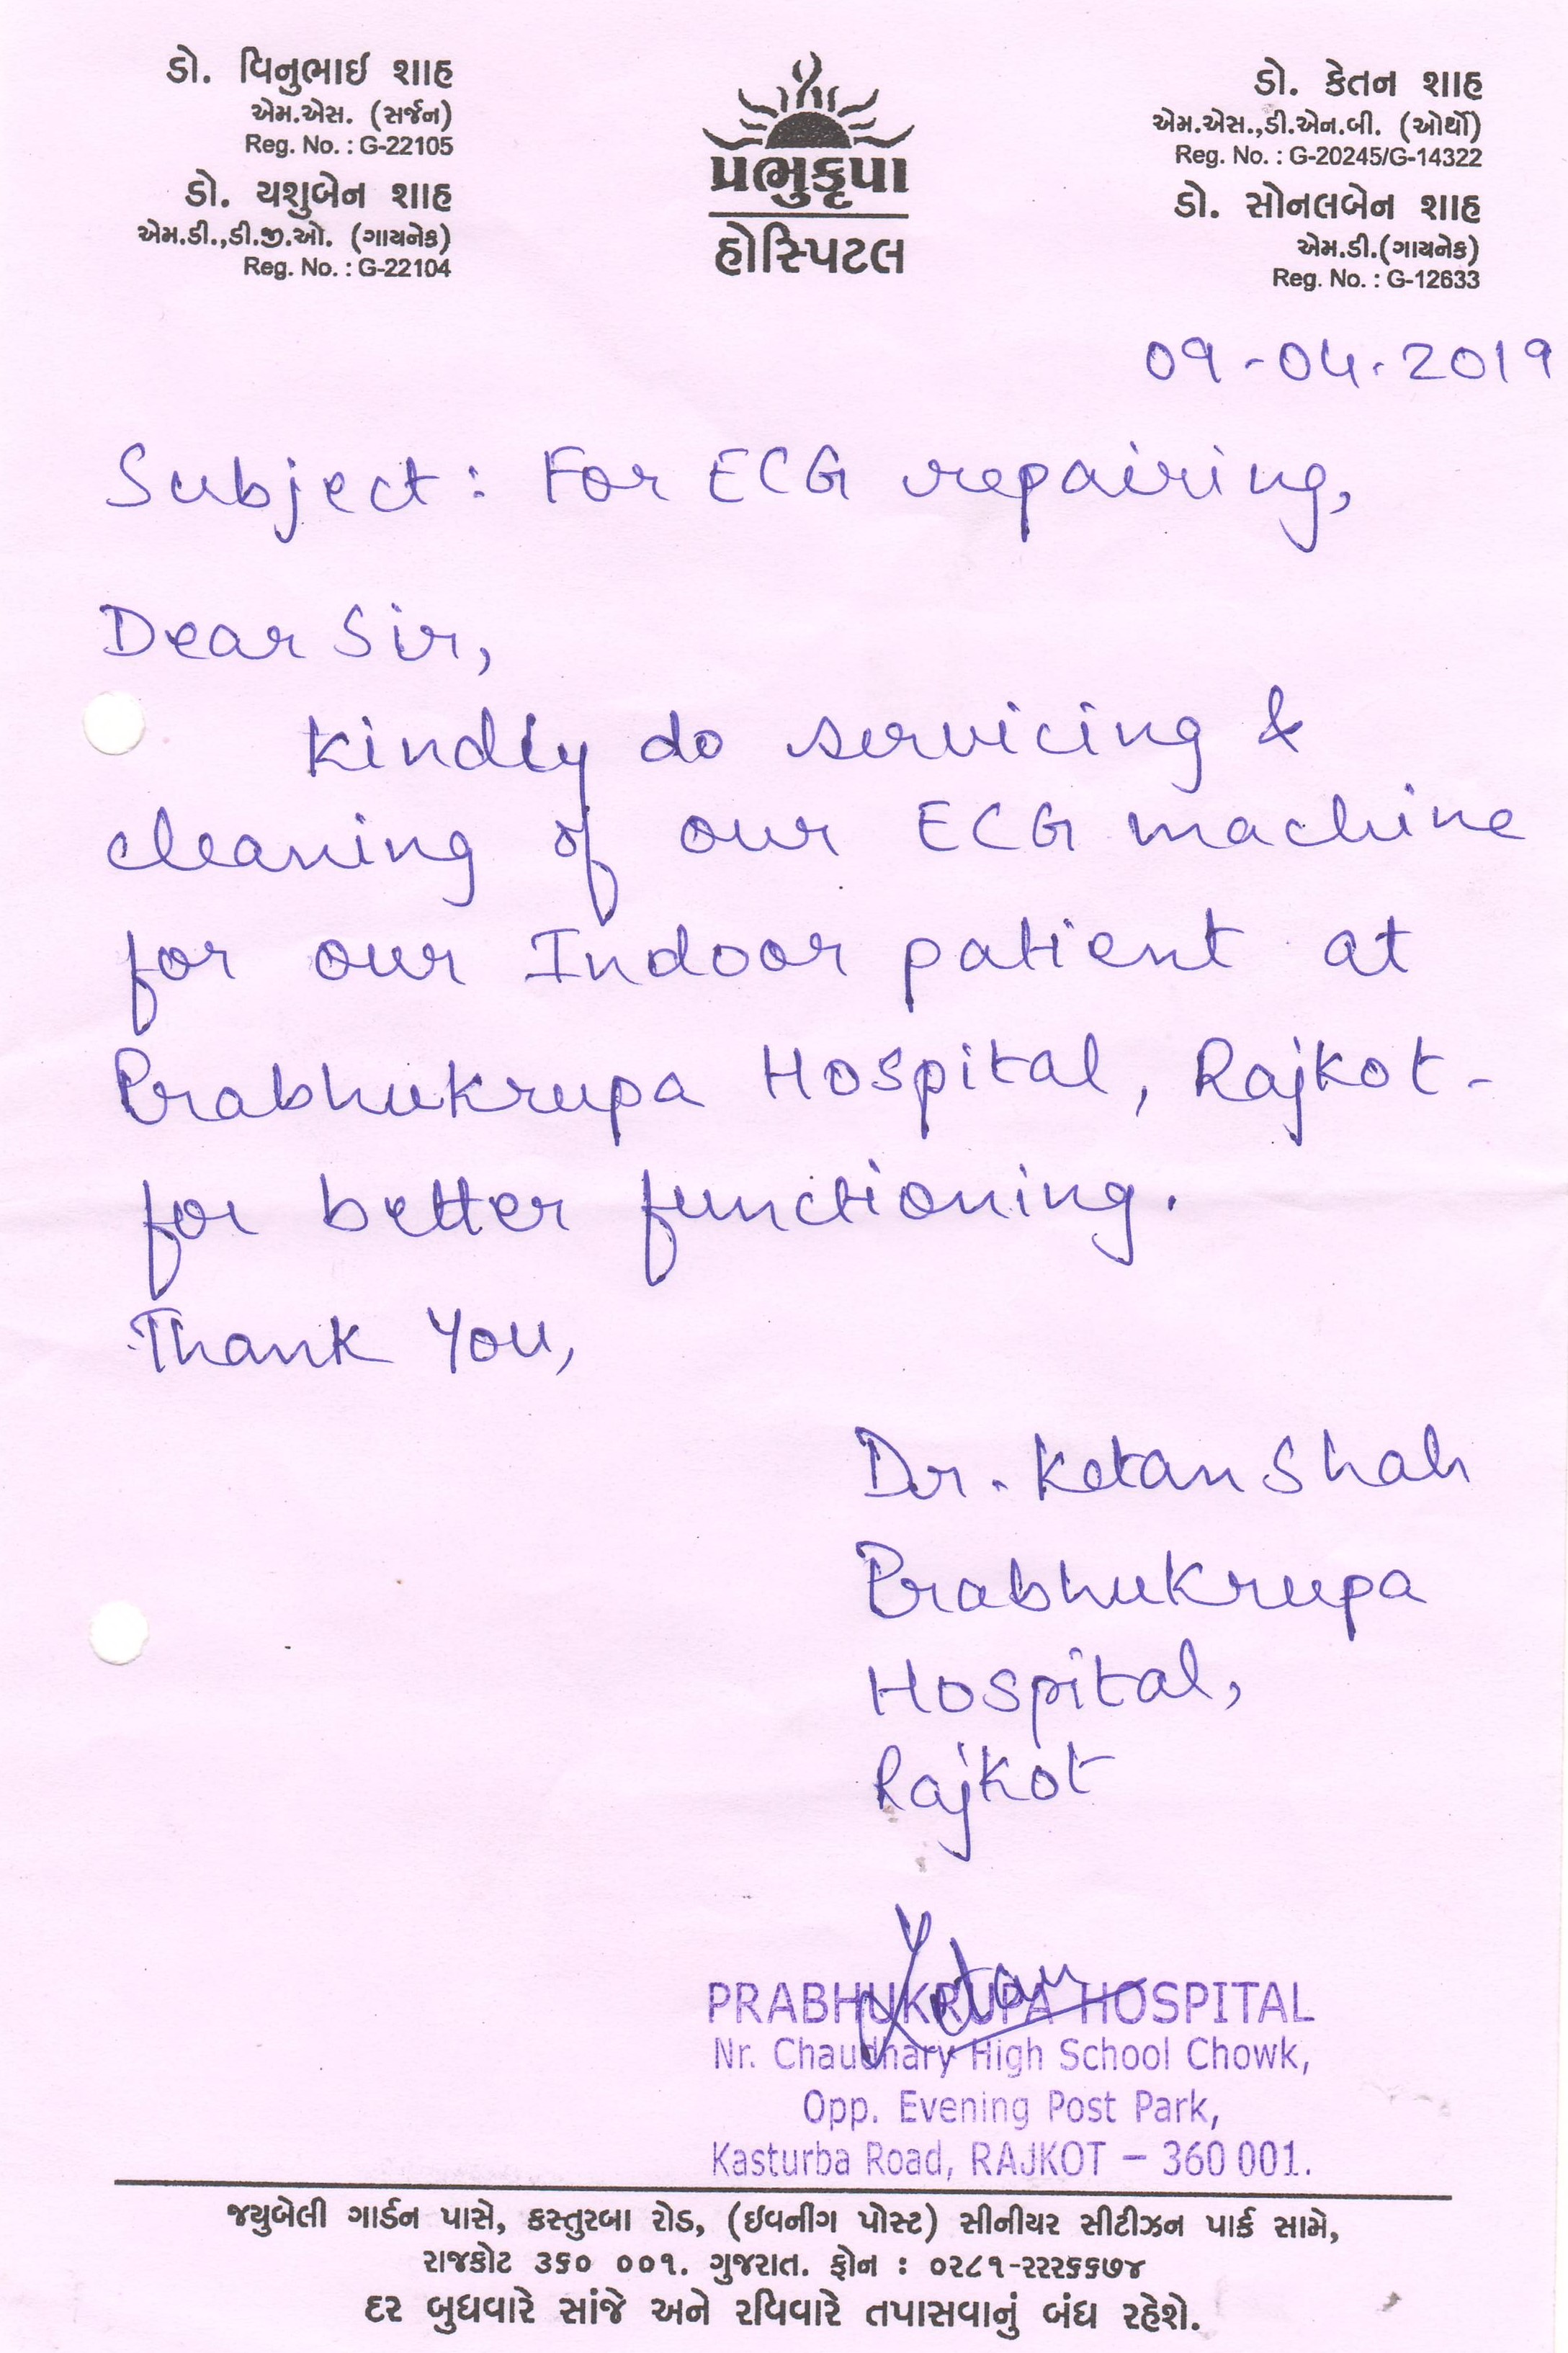 ડો. વિનુભાઈ શાહ
એમ.એસ. (સર્જન)
Reg. No. : G-22105
ડો. યશુબેન શાહ
એમ.ડી.,ડી.જી.ઓ. (ગાયનેક)
Reg. No. : G-22104
પ્રભુકૃપા
હોસ્પિટલ
ડો. કેતન શાહ
એમ.એસ.,ડી.એન.બી. (ઓર્થો)
Reg. No. : G-20245/G-14322
ડો. સોનલબેન શાહ
એમ.ડી.(ગાયનેક)
Reg. No. : G-12633
09-04.2019
Subject: For ECG repairing,
Dear Sir,
Kindly do servicing &
cleaning of our ECG machine
for our Indoor patient at
Prabhukrupa Hospital, Rajkot-
for better functioning.
Thank You,
Dr. Ketan Shah
Prabhukrupa
Hospital,
Rajkot
Ketan
PRABHUKRUPA HOSPITAL
Nr. Chaudhary High School Chowk,
Opp. Evening Post Park,
Kasturba Road, RAJKOT – 360 001.
જયુબેલી ગાર્ડન પાસે, કસ્તુરબા રોડ, (ઇવનીંગ પોસ્ટ) સીનીયર સીટીઝન પાર્ક સામે,
રાજકોટ ૩૬૦ ૦૦૧. ગુજરાત. ફોન : ૦૨૮૧-૨૨૨૬૬૭૪
દર બુધવારે સાંજે અને રવિવારે તપાસવાનું બંધ રહેશે.